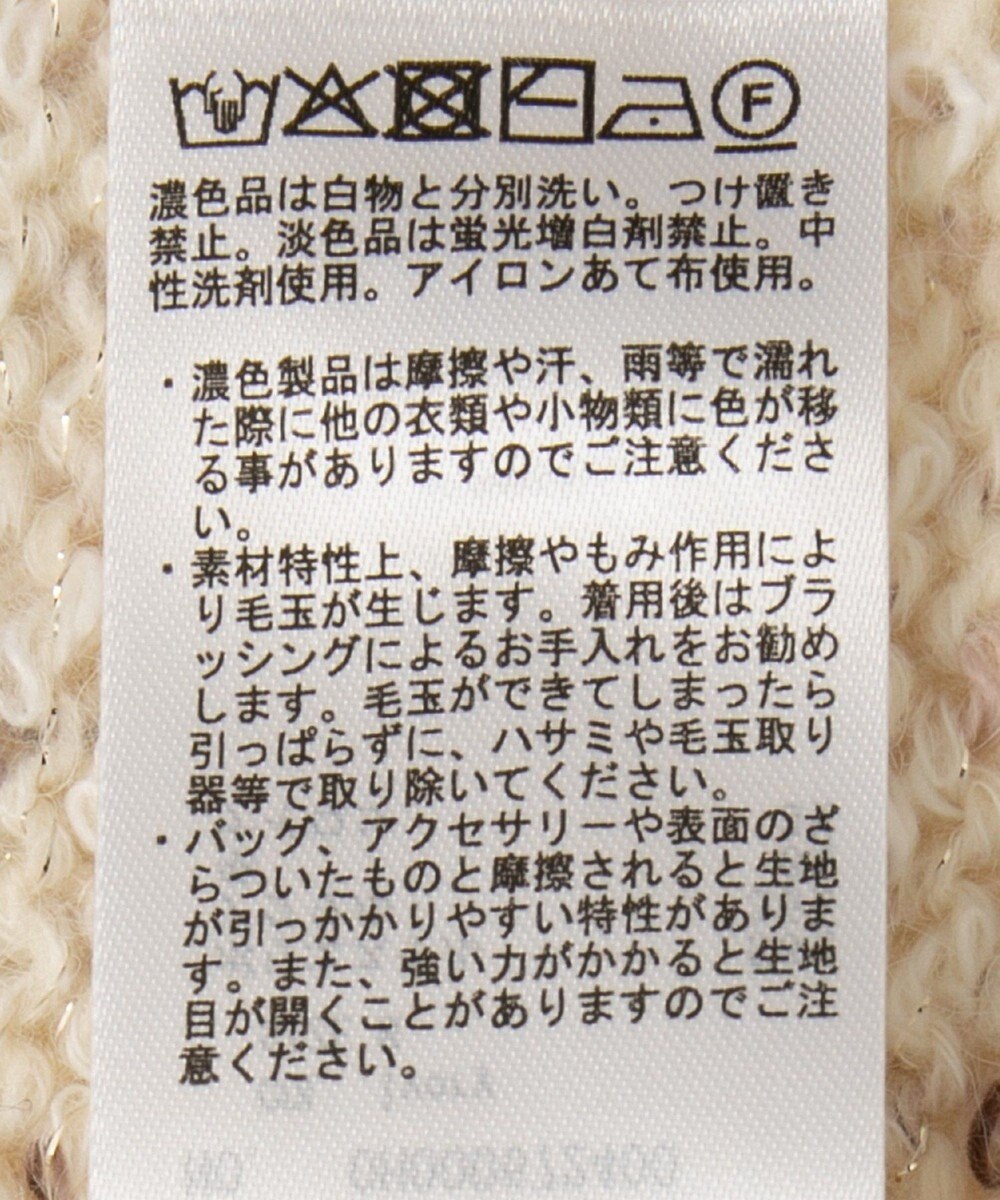 F
濃色品は白物と分別洗い。つけ置き
禁止。淡色品は蛍光増白剤禁止。中
性洗剤使用。アイロンあて布使用。
・濃色製品は摩擦や汗、雨等で濡れ
た際に他の衣類や小物類に色が移
る事がありますのでご注意くださ
い。
・素材特性上、摩擦やもみ作用によ
り毛玉が生じます。着用後はブラ
ッシングによるお手入れをお勧め
します。毛玉ができてしまったら
引っぱらずに、ハサミや毛玉取り
器等で取り除いてください。
・バッグ、アクセサリーや表面のざ
らついたものと摩擦されると生地
が引っかかりやすい特性がありま
す。また、強い力がかかると生地
目が開くことがありますのでご注
意ください。